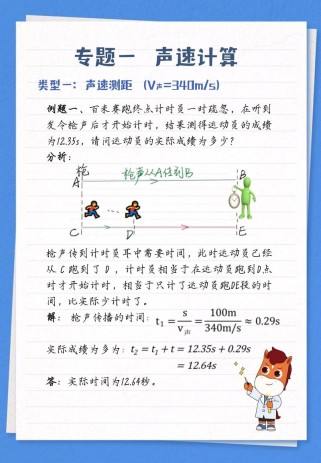 专题一 声速计算
类型一：声速测距 (V声=340m/s)
例题一、百米赛跑终点计时员一时疏忽，在听到
发令枪声后才开始计时，结果测得运动员的成绩
为12.35s，请问运动员的实际成绩为多少？
分析：
枪
枪声从A传到B
A
B
C
D
E
枪声传到计时员耳中需要时间，此时运动员已经
从C跑到了D，计时员相当于在运动员跑到D点
时才开始计时，相当于只计了运动员跑DE段的时
间，比实际少计时了。
解：枪声传播的时间：t₁ = s/v声 = 100m/340m/s ≈ 0.29s
实际成绩为多为：t₂ = t₁ + t = 12.35s + 0.29s
= 12.64s
答：实际时间为12.64秒。